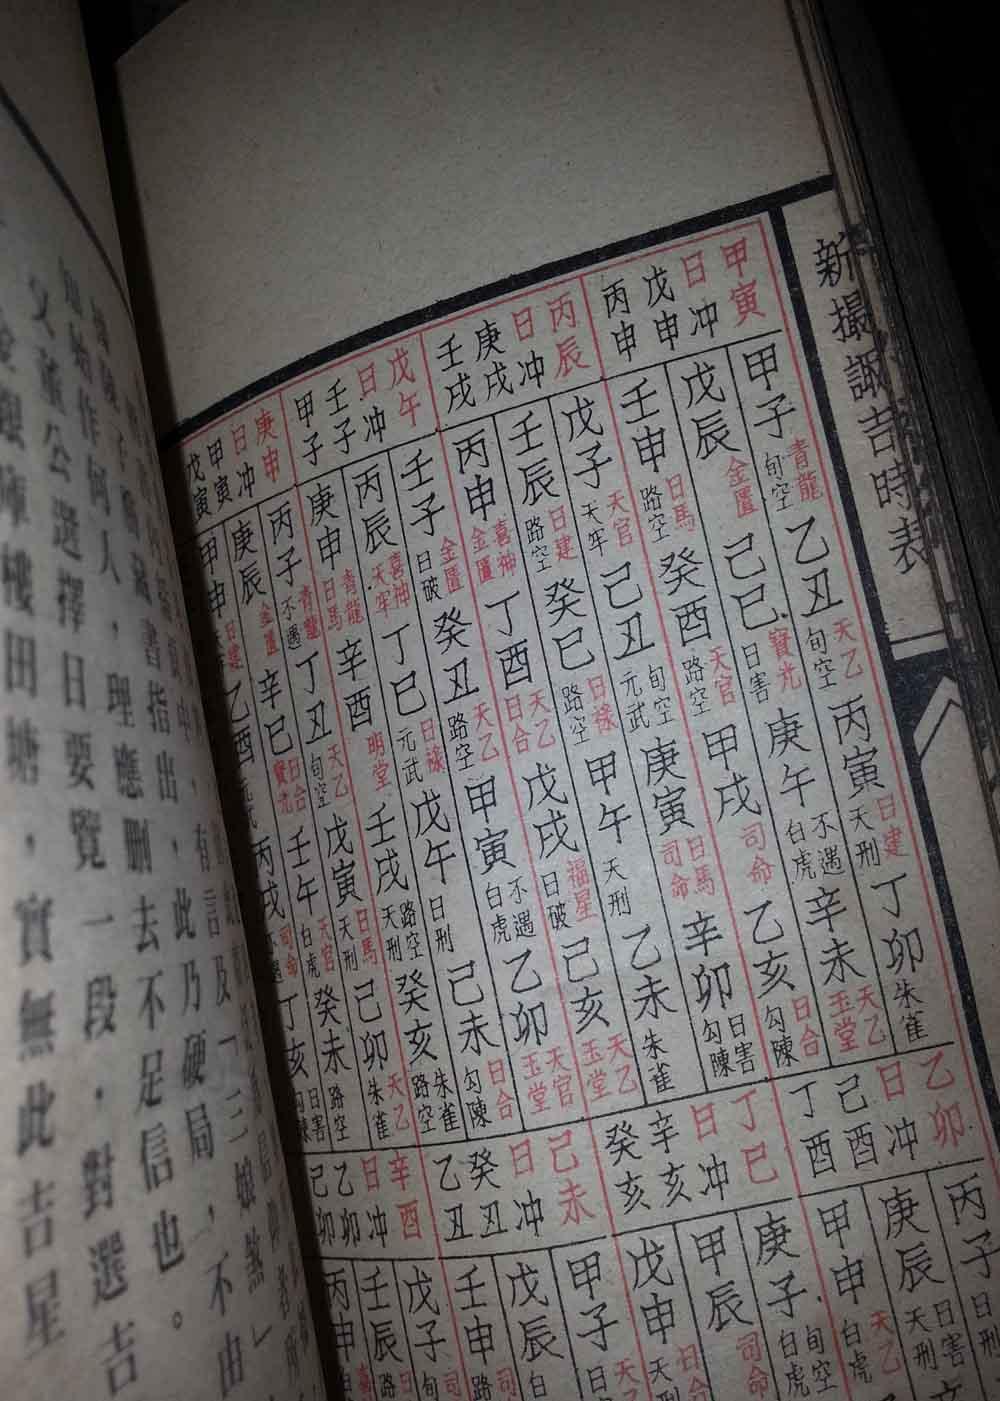 新撮諏吉時表
甲寅日冲戊申丙申
甲子 青龍 旬空 乙丑 天乙 旬空 丙寅 日建 天刑 丁卯 朱雀
戊辰 金匱 己巳 寶光 日害 庚午 不遇 白虎 辛未 天乙 玉堂
壬申 日馬 路空 癸酉 天官 路空 甲戌 司命 乙亥 日合 勾陳
丙辰日冲庚戌壬戌
戊子 天官 天牢 己丑 旬空 元武 庚寅 日馬 司命 辛卯 日害 勾陳
壬辰 日建 路空 癸巳 日祿 路空 甲午 天刑 乙未 朱雀
丙申 喜神 金匱 丁酉 天乙 日合 戊戌 福星 日破 己亥 天乙 玉堂
戊午日冲壬子甲子
壬子 金匱 日破 癸丑 天乙 路空 甲寅 不遇 白虎 乙卯 天官 玉堂
丙辰 喜神 天牢 丁巳 日祿 元武 戊午 日刑 己未 日合 勾陳
庚申 青龍 日馬 辛酉 明堂 壬戌 路空 天刑 癸亥 朱雀 路空
庚申日冲甲寅戊寅
丙子 青龍 不遇 丁丑 天乙 旬空 戊寅 日馬 天刑 己卯 天乙 朱雀
庚辰 金匱 辛巳 日合 寶光 壬午 天官 白虎 癸未 路空
甲申 日建 乙酉 元武 丙戌 司命 丁亥 日害
乙卯日冲己酉丁酉
丙子
庚辰 日害 天刑
甲申 天乙 白虎
丁巳日冲辛亥癸亥
庚子 旬空 白虎
甲 司命
戊申 日合
己未日冲癸丑乙丑
甲子 日害
戊辰 白
壬申 司 路空
辛酉日冲乙卯己卯
戊子
壬辰
丙申
有言及「三娘煞」
書指出，此乃硬局，不由
始作何人，理應刪去不足信也。
父董公選擇日要覽一段，對選吉
金銀庫樓田塘，實無此吉星